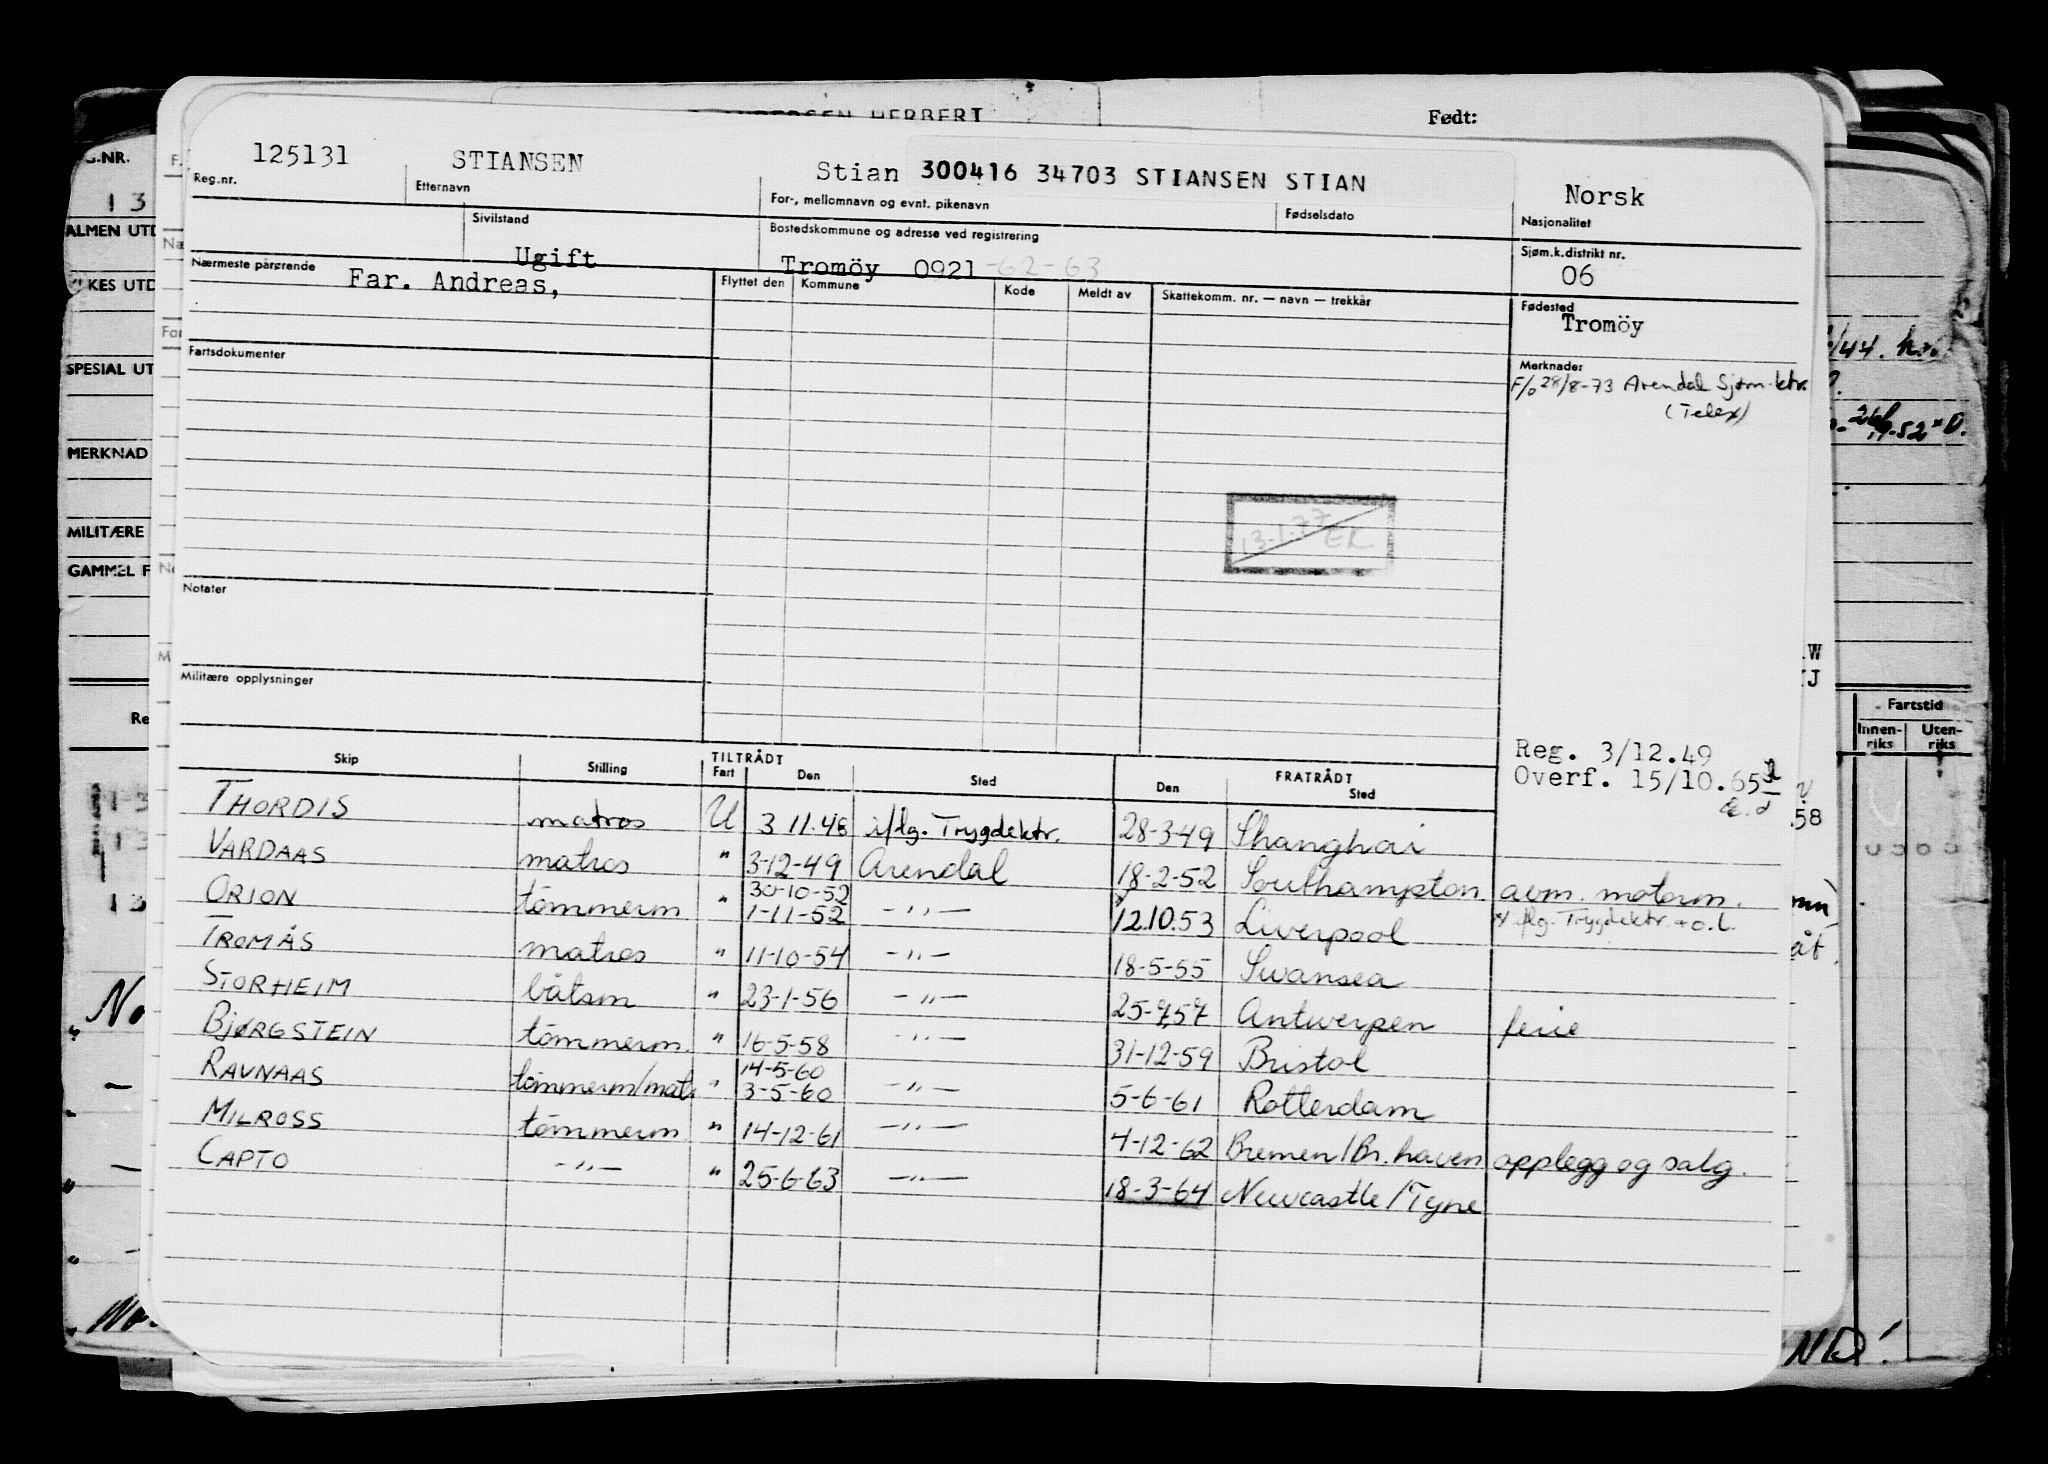 ANDERSEN HERBERT
Født:
125131
STIANSEN
Stian 300416 34703 STIANSEN STIAN
Norsk
Reg.nr.
Etternavn
For-, mellomnavn og evnt. pikenavn
Fødselsdato
Nasjonalitet
Sivilstand
Ugift
Bostedskommune og adresse ved registrering
Tromöy 0921 -62-63
Sjøm.k.distrikt nr.
06
Nærmeste pårørende
Far. Andreas,
Flyttet den
Kommune
Kode
Meldt av
Skattekomm. nr. — navn — trekkår
Fødested
Tromöy
Fartsdokumenter
Merknader
F/o 28/8-73 Arendal Sjøm.ktr.
(Telex)
13-1-77
EL
Notater
Militære opplysninger
Reg. 3/12.49
Overf. 15/10.65
Skip
Stilling
TILTRÅDT
Fart
Den
Sted
FRATRÅDT
Den
Sted
THORDIS matros U 3 11.48 i/flg. Trygdektr. 28-3-49 Shanghai
VARDAAS matros " 3-12-49 Arendal 18-2-52 Southampton avm. motorm.
ORION tömmerm " 30-10-52 1-11-52 —"— 12.10.53 Liverpool x flg. Trygdektr. + o.l.
TROMÅS matros " 11-10-54 —"— 18-5-55 Swansea
STORHEIM båtsm " 23-1-56 —"— 25-7-57 Antwerpen ferie
BJØRGSTEIN tömmerm. " 16-5-58 —"— 31-12-59 Bristol
RAVNAAS tömmerm/matr " 14-5-60 3-5-60 —"— 5-6-61 Rotterdam
MILROSS tömmerm " 14-12-61 —"— 4-12-62 Bremen/Br.haven opplegg og salg.
CAPTO —"— " 25-6-63 —"— 18-3-64 Newcastle/Tyne
G.NR.
13
ALMEN UTD
KES UTD
SPESIAL UT
MERKNAD
MILITÆRE
GAMMEL F
Re
Fartstid
Innen-
riks
Uten-
riks